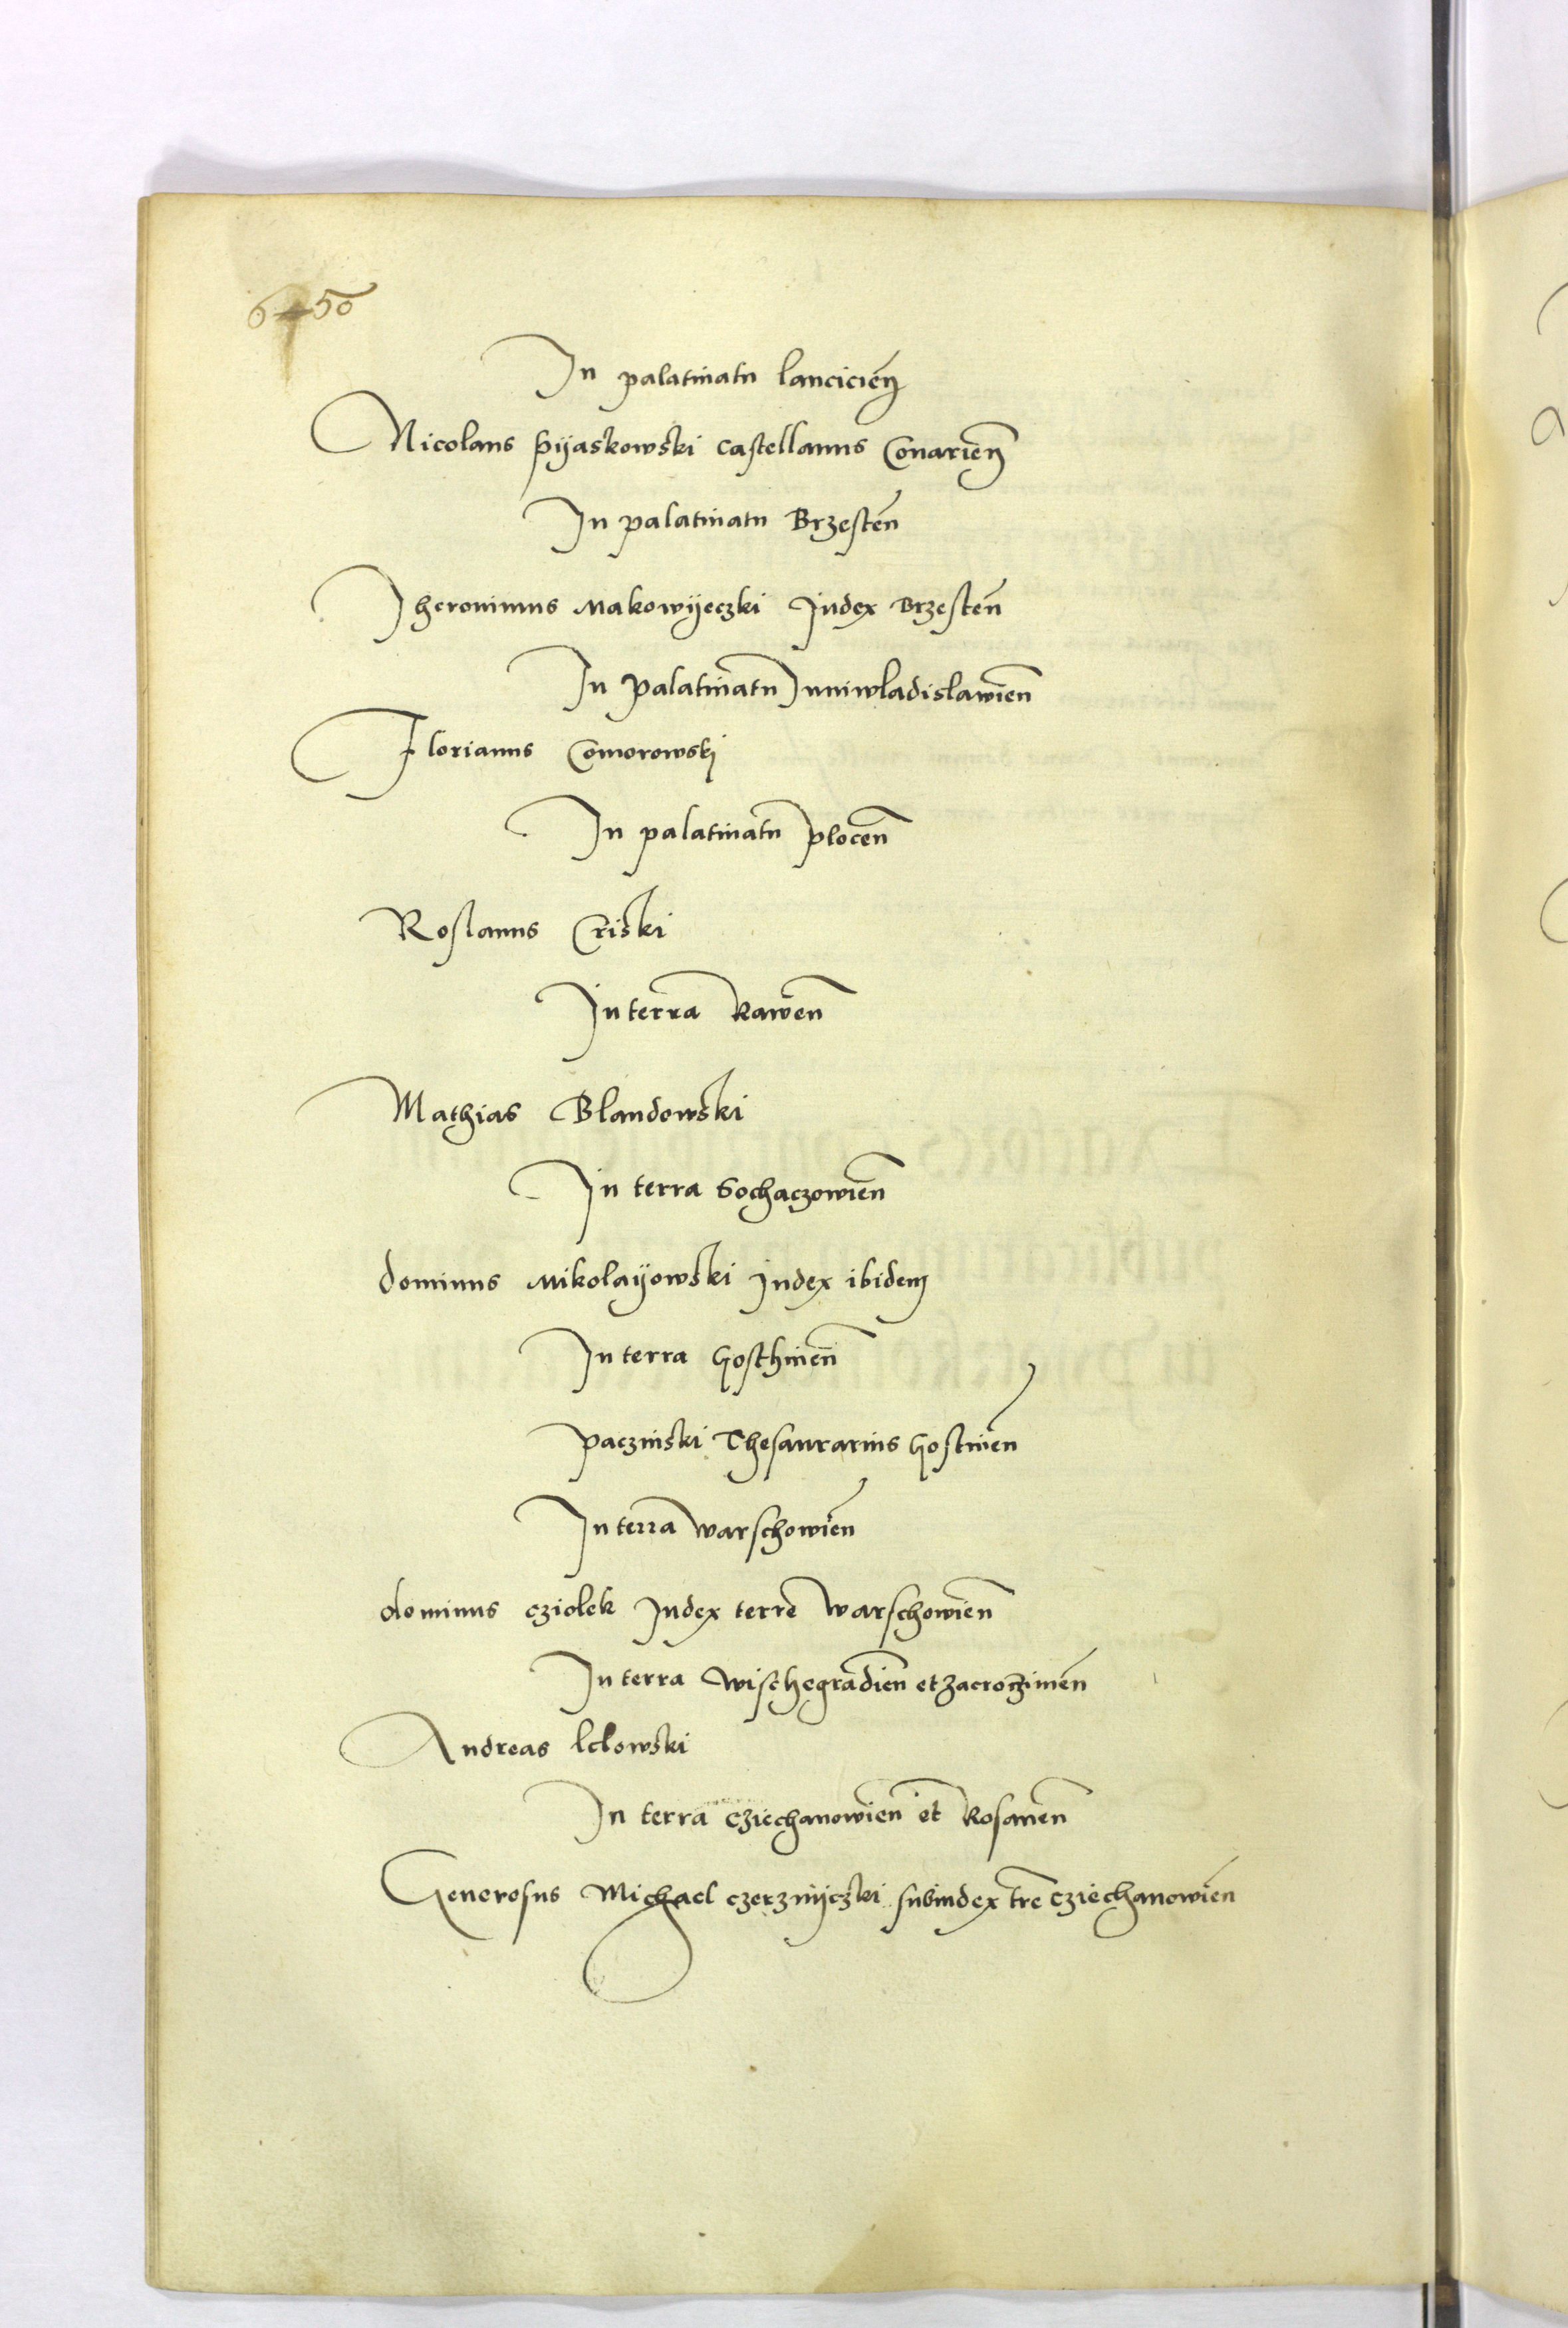 In palatinatu lanciciēn
Nicolaus pijaskowski castellanus Conariēn
In palatinatu Brzestēn
Iheronimus Makowijeczki Judex Brzestēn
In palatinatu Juniwladislawiēn
Florianus Comorowski
In palatinatu plocēn
Roslanus Criski
In terra Rawēn
Mathias Blandowski
In terra Sochaczowiēn
dominus Mikolaijowski Judex ibidem
In terra Gosthinēn
paczinski Thesaurarius Gostinēn
In terra warschowiēn
dominus cziolek Judex terre warschowiēn
In terra wischegradiēn et zacroczimēn
Andreas lclowski
In terra cziechanowiēn et Rosanēn
Generosus Michael czerznijczki subiudex tre cziechanowiēn